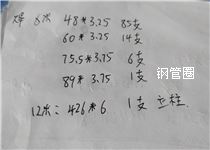 焊 6米 48*3.25 85支
60*3.25 14支
75.5*3.75 6支
89*3.75 1支
钢管圈
12米: 426*6 1支 立柱